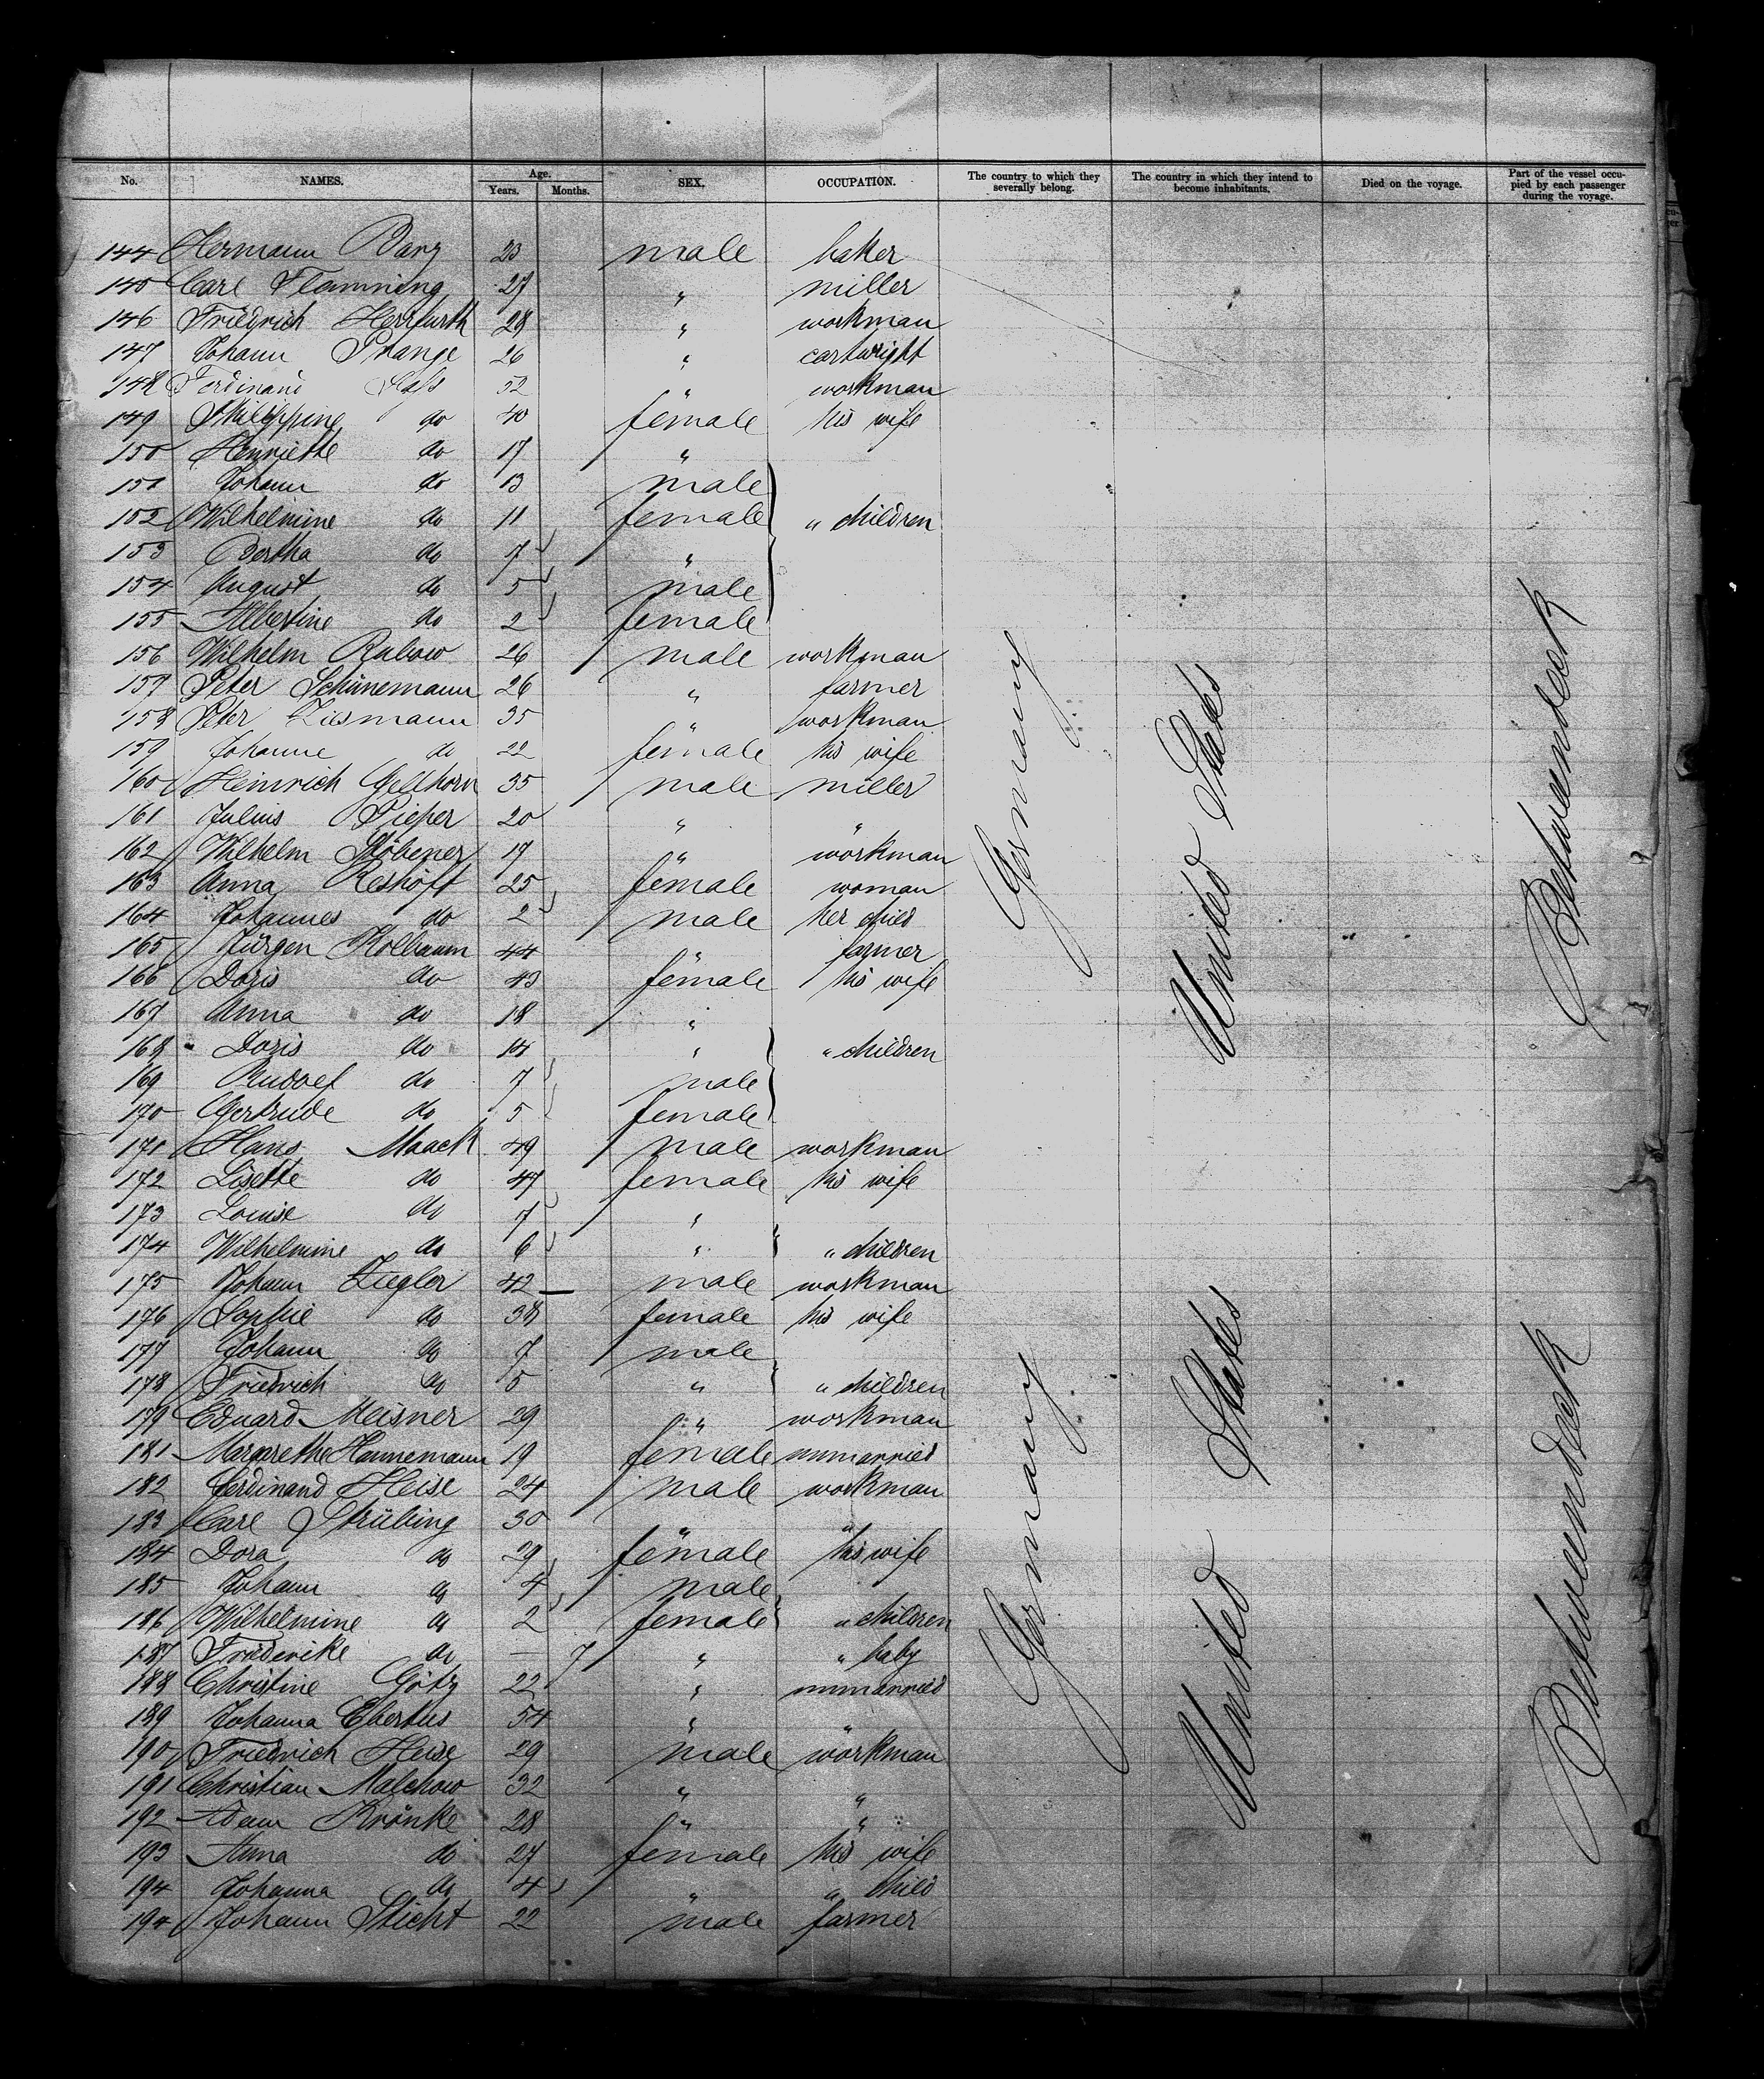 No. NAMES. Age. Years. Months. SEX. OCCUPATION. The country to which they severally belong. The country in which they intend to become inhabitants. Died on the voyage. Part of the vessel occupied by each passenger during the voyage.
144 Hermann Barz 23 male baker
145 Carl Flemming 27 " miller
146 Friedrich Herrfurth 28 " workman
147 Johann Prange 26 " cartwright
148 Ferdinand 52 " workman
149 Philippine do 40 female his wife
150 Henriette do 17 "
151 Johann do 13 male
152 Wilhelmine do 11 female " children
153 Bertha do 7 "
154 August do 5 male
155 Albertine do 2 female
156 Wilhelm Rabow 26 male workman
157 Peter Schünemann 26 " farmer
158 Peter Ziesmann 35 " workman
159 Johanne do 22 female his wife
160 Heinrich Gellhorn 35 male miller
161 Julius Pieper 20 " "
162 Wilhelm Stöbener 17 " workman
163 Anna Reshöft 25 female woman
164 Johannes do 2 male her child
165 Jürgen Kolbaum 44 " farmer
166 Doris do 43 female his wife
167 Anna do 18 "
168 Doris do 14 " " children
169 Rudolf do 7 male
170 Gertrude do 5 female
171 Hans Maack 49 male workman
172 Lisette do 47 female his wife
173 Louise do 7 "
174 Wilhelmine do 6 " " children
175 Johann Ziegler 42 — male workman
176 Sophie do 38 female his wife
177 Johann do 7 male
178 Friedrich do 5 " " children
179 Eduard Meisner 29 " workman
181 Margarethe Hannemann 19 female unmarried
182 Ferdinand Heise 24 male workman
183 Carl Strübing 30 " "
184 Dora do 29 female his wife
185 Johann do 4 male
186 Wilhelmine do 2 female " children
187 Friederike do — 7 " " baby
188 Christine Götz 22 " unmarried
189 Johanna Ebertus 54 "
190 Friedrich Heise 29 male workman
191 Christian Malchow 32 " "
192 Adam Krönke 28 " "
193 Anna do 27 female his wife
194 Johanna do 4 " " child
194 Johann Sticht 22 male farmer
Germany
United States
Betweendeck
Germany
United States
Betweendeck